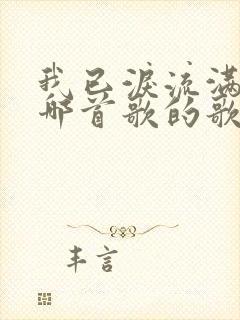 我已淚流滿
哪首歌的歌
丰言